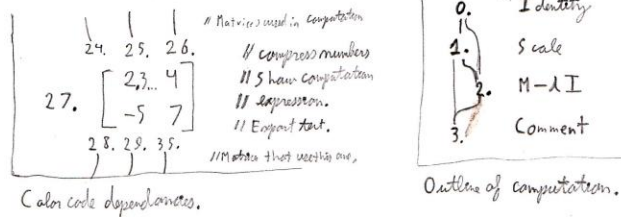 // Matrices used in computation
24. 25. 26.
// compress numbers
2.3... 4
// Show computation
27.
// expression.
-5 7
// Export text.
28. 29. 35.
// Matrices that use this one,
Color code dependancies.
0. Identity
1. Scale
2. M-λI
3. Comment
Outline of computation.